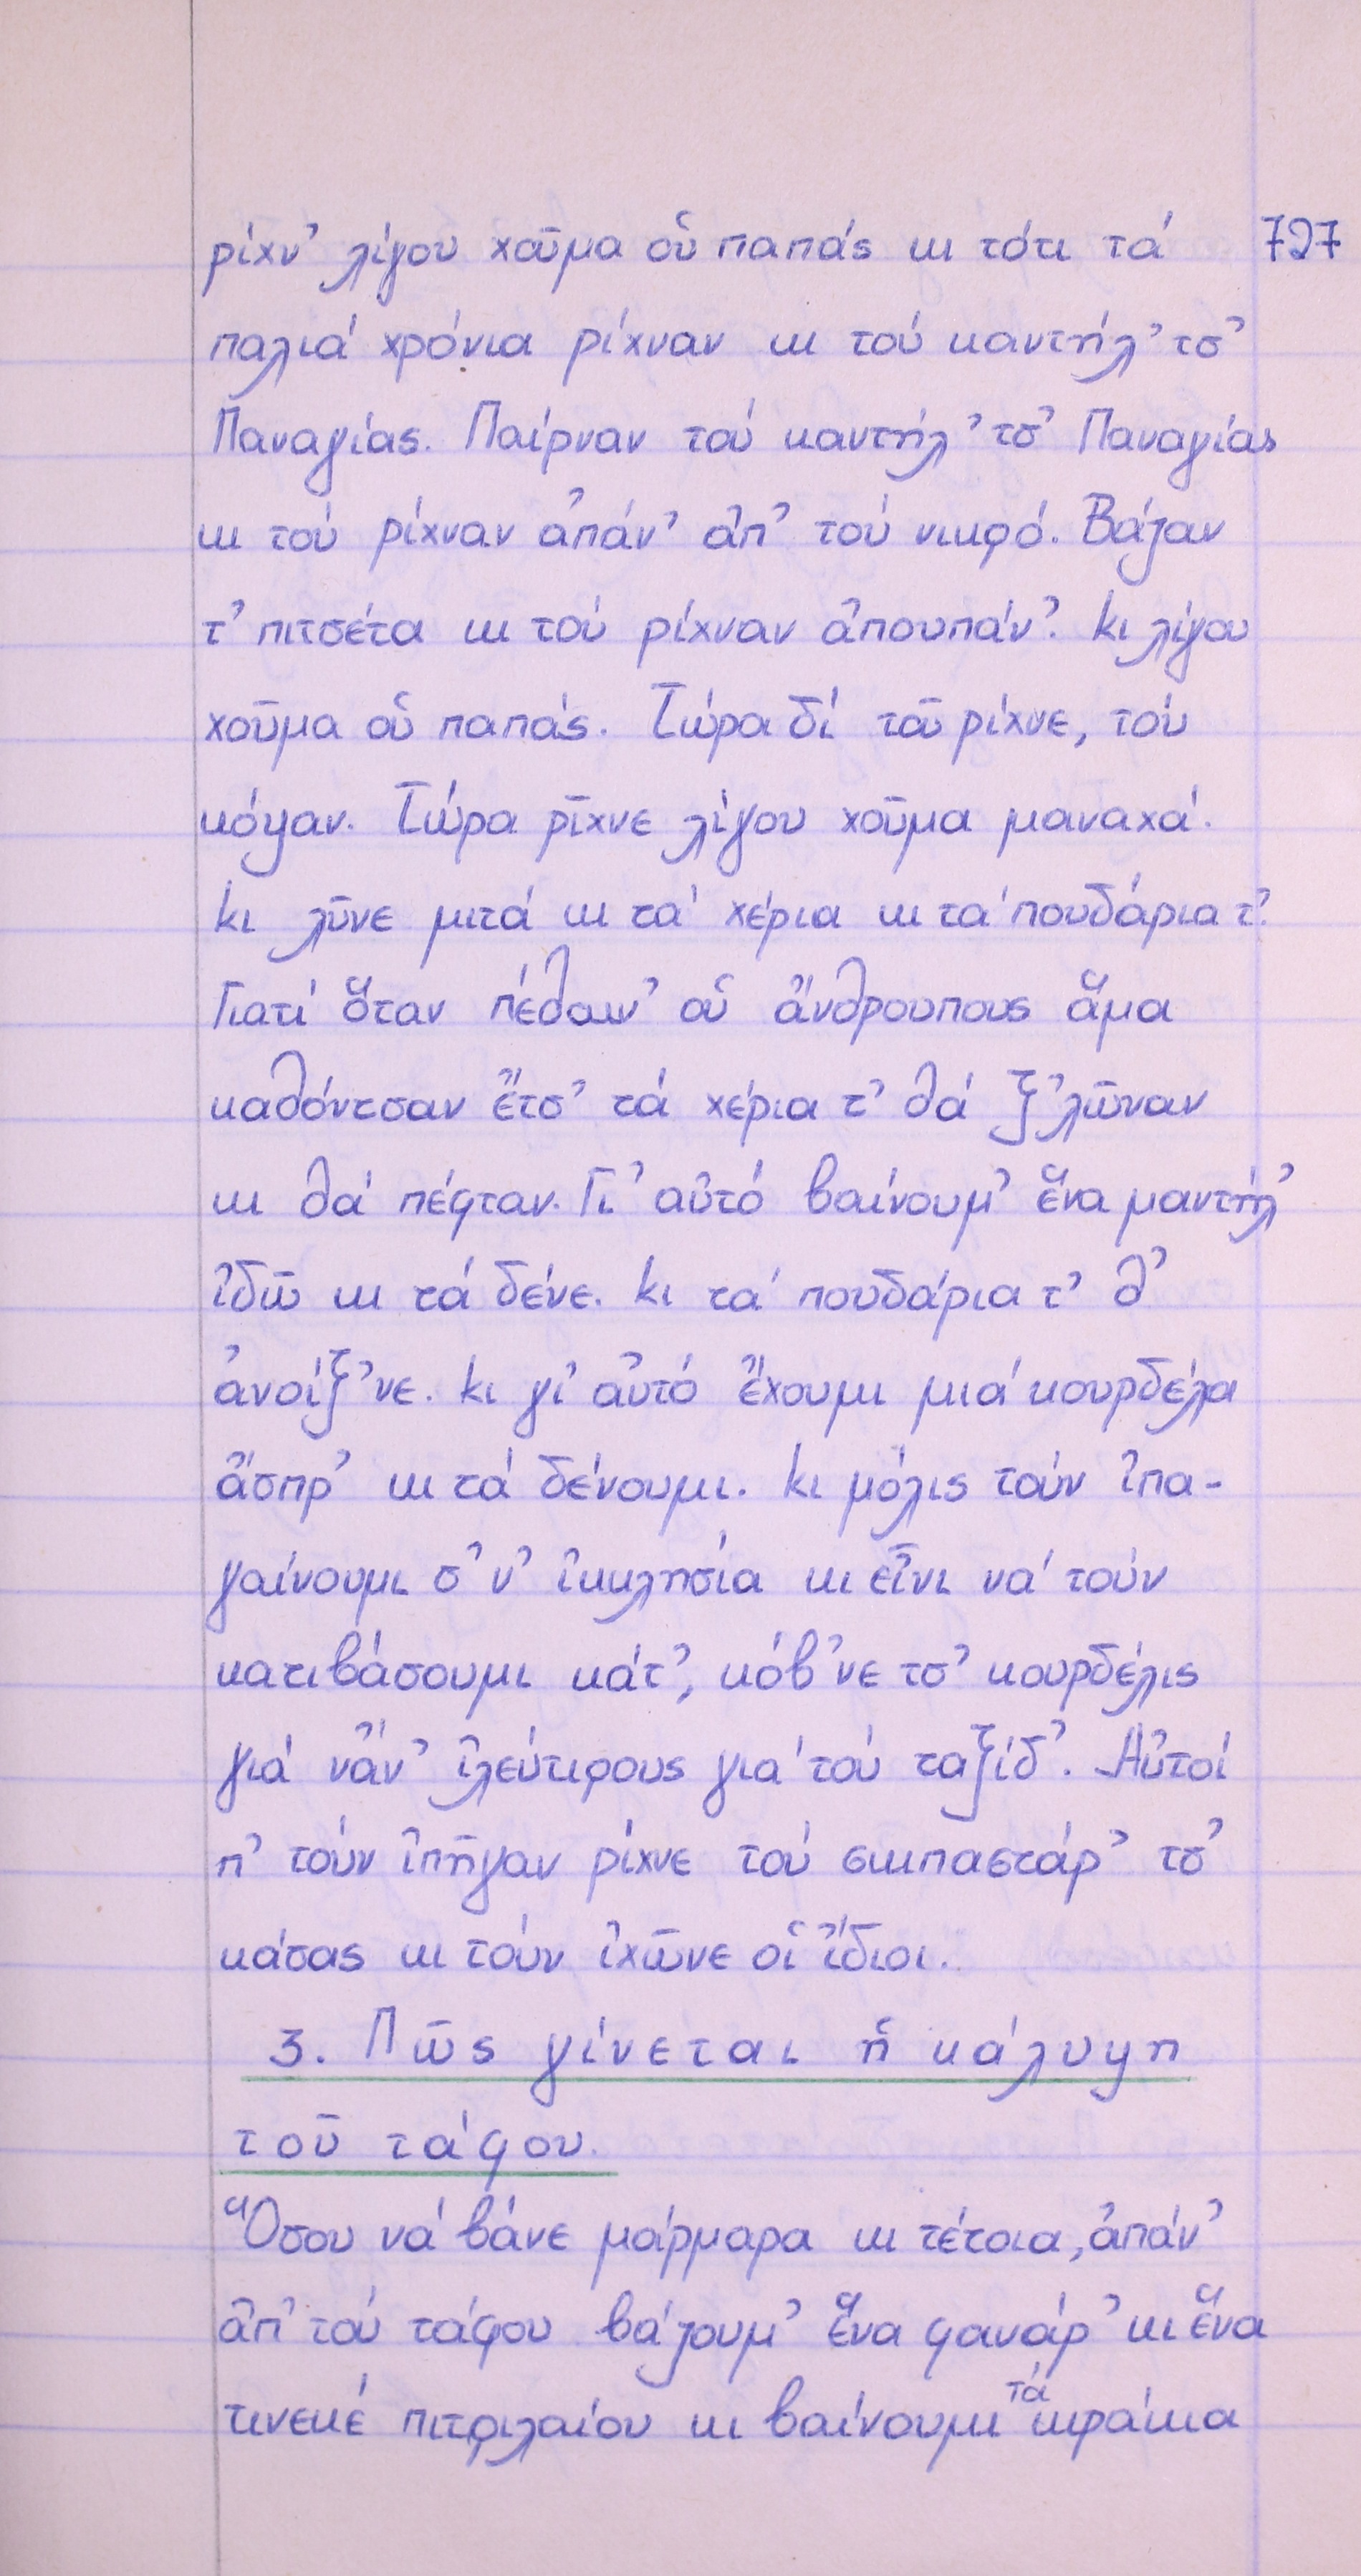 ρίχν' λίγου χοῦμα οὗ παπάς κι τότι τά 727
παλιά χρόνια ρίχναν κι τού καντήλ' τσ'
Παναγίας. Παίρναν τού καντήλ' τσ' Παναγίας
κι τού ρίχναν ἀπάν' ἀπ' τού νικρό. Βάζαν
τ' πιτσέτα κι τού ρίχναν ἀπουπάν'. Κι λίγου
χοῦμα οὗ παπάς. Τώρα δί τοῦ ρίχνε, τού
κόψαν. Τώρα ρῖχνε λίγου χοῦμα μαναχά.
Κι λῦνε μιτά κι τά χέρια κι τά πουδάρια τ'.
Γιατί ὅταν πέθαιν' οὗ ἄνθρουπους ἅμα
καθόντσαν ἔτσ' τά χέρια τ' θά ξ'λῶναν
κι θά πέφταν. Γι' αὐτό βαίνουμ' ἕνα μαντήλ'
ἰδῶ κι τά δένε. Κι τά πουδάρια τ' θ'
ἀνοίξ'νε. Κι γι' αὐτό ἔχουμι μιά κουρδέλα
ἄσπρ' κι τά δένουμι. Κι μόλις τούν ἰπα-
γαίνουμι σ'ν' ἰκκλησία κι εἶνι νά τούν
κατιβάσουμι κάτ', κόβ'νε τσ' κουρδέλις
γιά νἄν' ἰλεύτιρους γιά τού ταξίδ'. Αὐτοί
π' τούν ἰπῆγαν ρίχνε τού σκιπαστάρ' τσ'
κάσας κι τούν ἰχῶνε οἱ ἴδιοι.
3. Πῶς γίνεται ἡ κάλυψη
τοῦ τάφου.
Ὅσου νά βάνε μάρμαρα κι τέτοια, ἀπάν'
ἀπ' τού τάφου βάζουμ' ἕνα φανάρ' κι ἕνα
τινεκέ πιτριλαίου κι βαίνουμι τά κιράκια